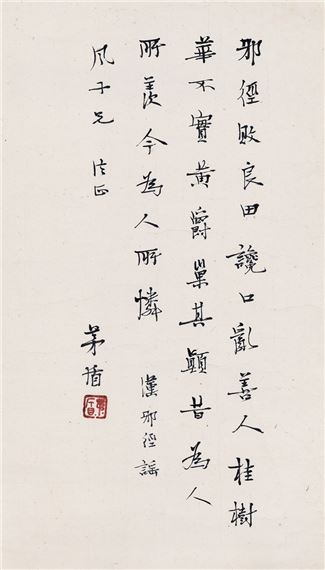 邪徑敗良田讒口亂善人桂樹
華不實黄爵巢其顛昔為人
所羡今為人所憐 漢邪徑謡
風子兄 法正
茅盾